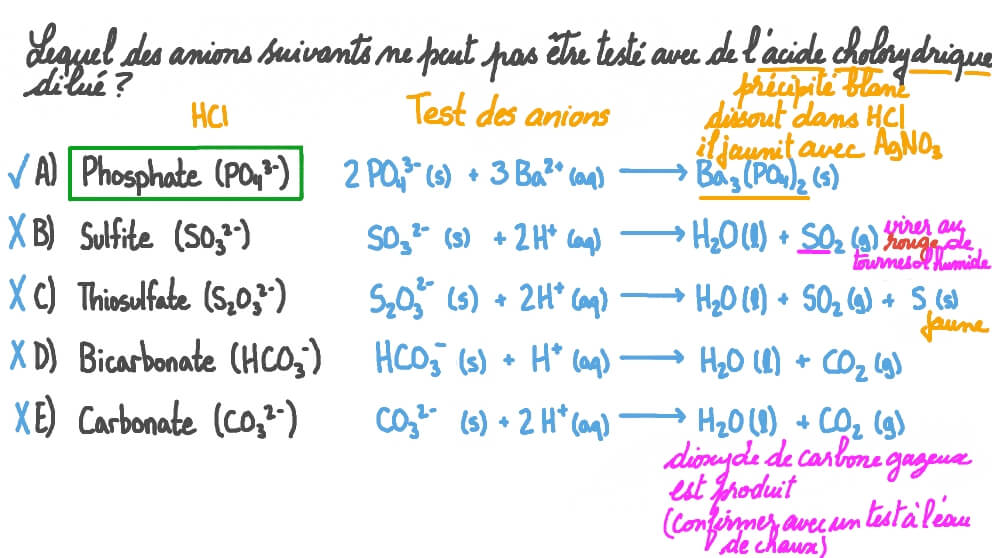 Lequel des anions suivants ne peut pas être testé avec de l'acide cholorydrique
dilué ?
HCl
Test des anions
précipité blanc
dissout dans HCl
il jaunit avec AgNO₃
✓ A) Phosphate (PO₄³⁻) 2 PO₄³⁻ (s) + 3 Ba²⁺ (aq) ⟶ Ba₃(PO₄)₂ (s)
X B) Sulfite (SO₃²⁻) SO₃²⁻ (s) + 2H⁺ (aq) ⟶ H₂O (l) + SO₂ (g)
virer au
rouge de
tournesol humide
X C) Thiosulfate (S₂O₃²⁻) S₂O₃²⁻ (s) + 2H⁺ (aq) ⟶ H₂O (l) + SO₂ (g) + S (s)
jaune
X D) Bicarbonate (HCO₃⁻) HCO₃⁻ (s) + H⁺ (aq) ⟶ H₂O (l) + CO₂ (g)
X E) Carbonate (CO₃²⁻) CO₃²⁻ (s) + 2 H⁺ (aq) ⟶ H₂O (l) + CO₂ (g)
dioxyde de carbone gazeux
est produit
(confirmer avec un test à l'eau
de chaux)